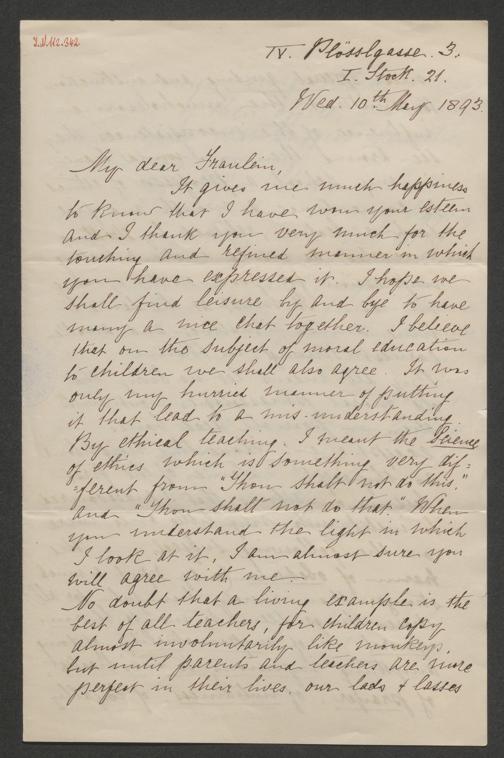 I.N.112.342
IV. Plösslgasse. 3.
I. Stock. 21.
Wed. 10th May 1893.
My dear Fraulein,
It gives me much happiness
to know that I have won your esteem
and I thank you very much for the
touching and refined manner in which
you have expressed it. I hope we
shall find leisure by and bye to have
many a nice chat together. I believe
that on the subject of moral education
to children we shall also agree. It was
only my hurried manner of putting
it that lead to a mis-understanding.
By ethical teaching. I meant the Science
of ethics which is something very dif=
=ferent from "Thou shalt not do this."
and "Thou shalt not do that." When
you understand the light in which
I look at it, I am almost sure you
will agree with me —
No doubt that a living example is the
best of all teachers, for children copy
almost involuntarily like monkeys,
but until parents and teachers are more
perfect in their lives, our lads & lasses